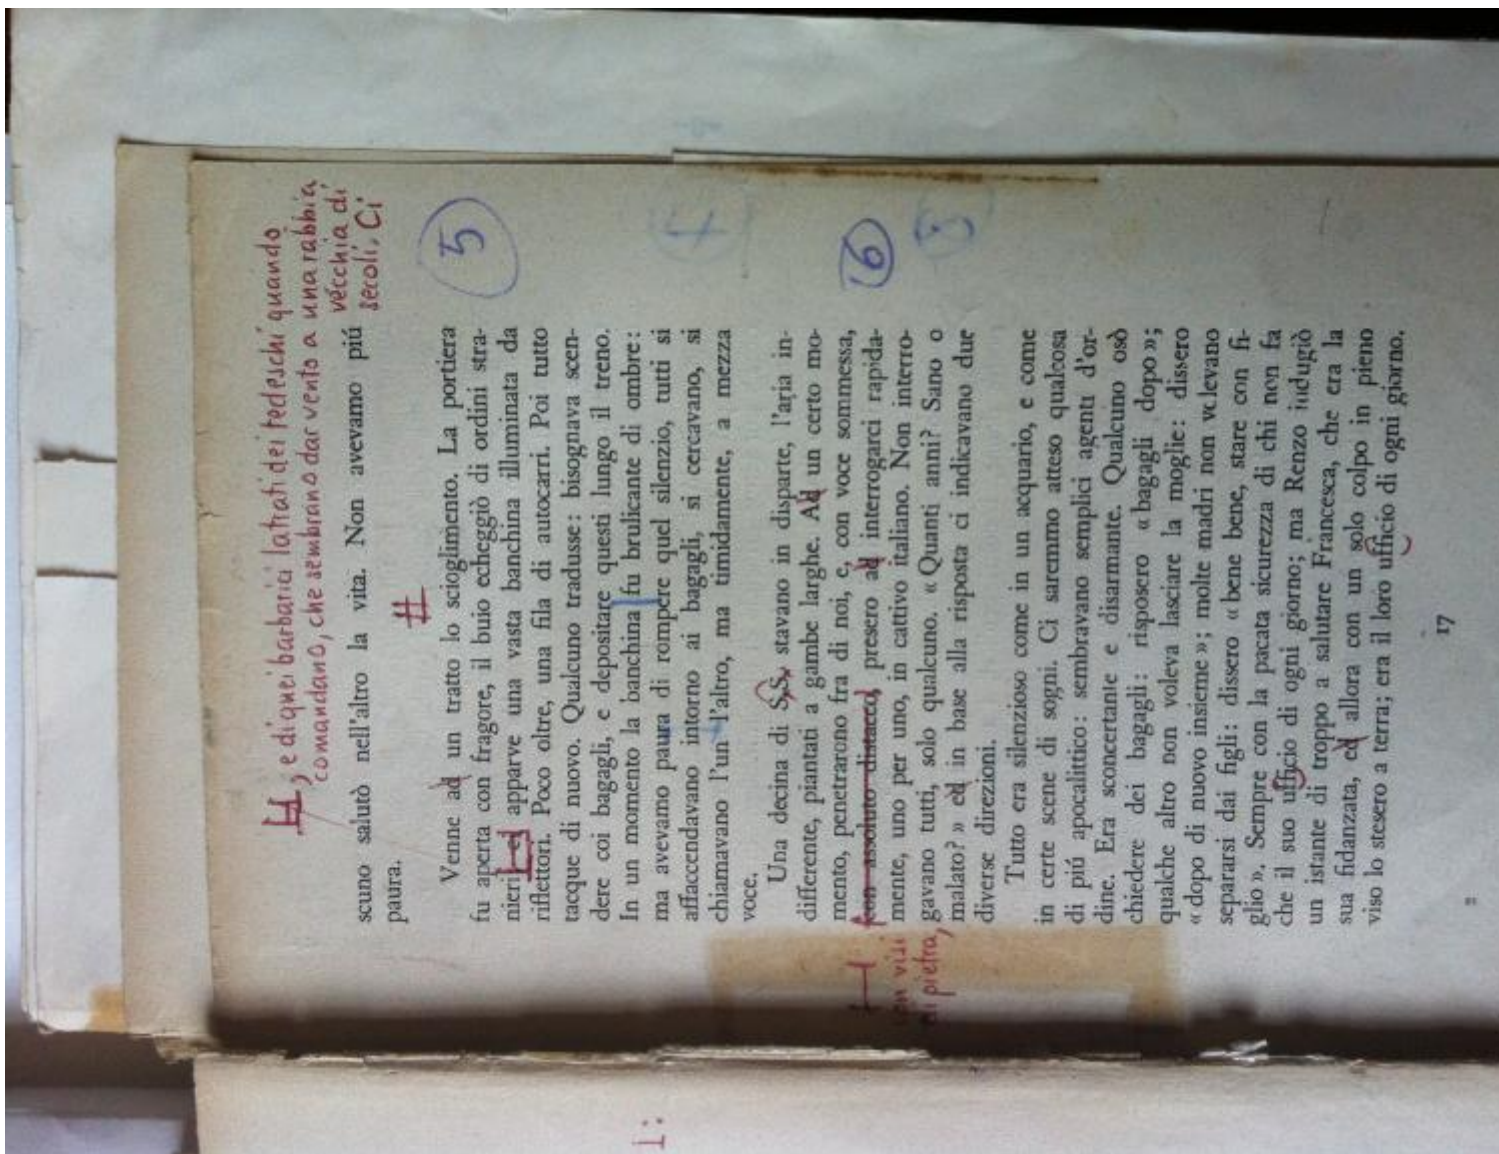 , e di quei barbarici latrati dei tedeschi quando
comandano, che sembrano dar vento a una rabbia
vecchia di
secoli. Ci
scuno salutò nell'altro la vita. Non avevamo piú
paura.
#
5
Venne ad un tratto lo scioglimento. La portiera
fu aperta con fragore, il buio echeggiò di ordini stra-
nieri ed apparve una vasta banchina illuminata da
riflettori. Poco oltre, una fila di autocarri. Poi tutto
tacque di nuovo. Qualcuno tradusse: bisognava scen-
dere coi bagagli, e depositare questi lungo il treno.
In un momento la banchina fu brulicante di ombre:
ma avevamo paura di rompere quel silenzio, tutti si
affaccendavano intorno ai bagagli, si cercavano, si
chiamavano l'un l'altro, ma timidamente, a mezza
voce.
Una decina di S.S. stavano in disparte, l'aria in-
differente, piantati a gambe larghe. Ad un certo mo-
mento, penetrarono fra di noi, e, con voce sommessa,
con assoluto distacco, presero ad interrogarci rapida-
6
con visi
di pietra,
mente, uno per uno, in cattivo italiano. Non interro-
gavano tutti, solo qualcuno. « Quanti anni? Sano o
malato? » ed in base alla risposta ci indicavano due
diverse direzioni.
Tutto era silenzioso come in un acquario, e come
in certe scene di sogni. Ci saremmo atteso qualcosa
di piú apocalittico: sembravano semplici agenti d'or-
dine. Era sconcertante e disarmante. Qualcuno osò
chiedere dei bagagli: risposero « bagagli dopo »;
qualche altro non voleva lasciare la moglie: dissero
« dopo di nuovo insieme »; molte madri non volevano
separarsi dai figli: dissero « bene bene, stare con fi-
glio ». Sempre con la pacata sicurezza di chi non fa
che il suo ufficio di ogni giorno; ma Renzo indugiò
un istante di troppo a salutare Francesca, che era la
sua fidanzata, ed allora con un solo colpo in pieno
viso lo stesero a terra; era il loro ufficio di ogni giorno.
17
2